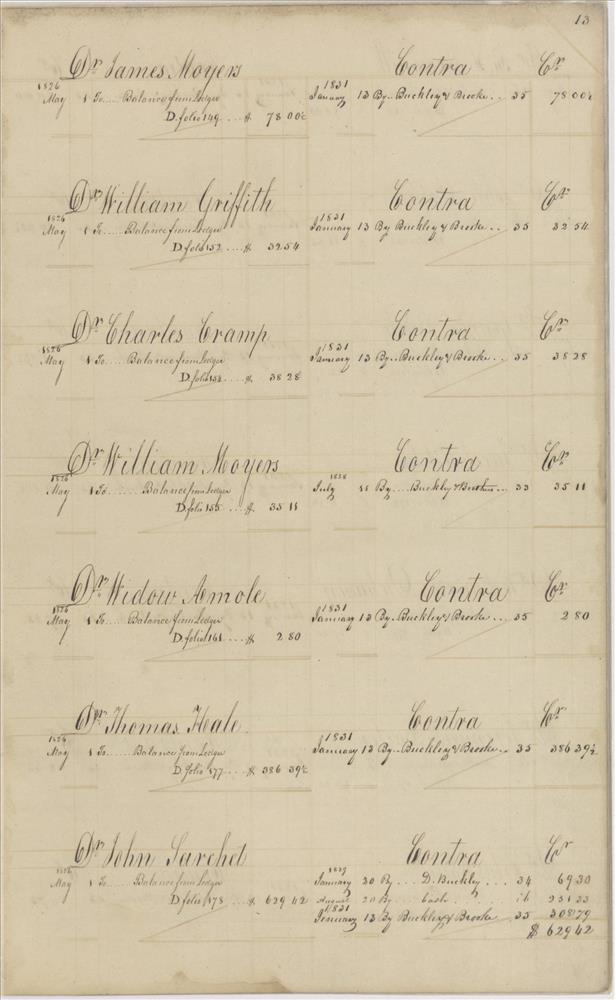 13
Dr James Moyers Contra Cr
1826 1831
May 1 To .... Balance from Ledger January 13 By .. Buckley & Brooke .. 35 78 00½
D. folio 149 .... $ 78 00½
Dr William Griffith Contra Cr
1826 1831
May 1 To ..... Balance from Ledger January 13 By Buckley & Brooke .. 35 32 54
D folio 152 .... $ 32 54
Dr Charles Cramp Contra Cr
1826 1831
May 1 To .... Balance from Ledger January 13 By .. Buckley & Brooke .. 35 38 28
D. folio .... $ 38 28
Dr William Moyers Contra Cr
1826
May 1 To ...... Balance from Ledger July 11 By .... Buckley & ... 33 35 11
D. folio 155 .... $ 35 11
Dr Widow Amole Contra Cr
1826 1831
May 1 To ..... Balance from Ledger January 13 By .. Buckley & Brooke ... 35 2 80
D folio 161 .... $ 2 80
Dr Thomas Heale Contra Cr
1826 1831
May 1 To ...... Balance from Ledger January 13 By .. Buckley & Brooke .. 35 386 39½
D. folio 177 .... $ 386 39½
Dr John Sarchet Contra Cr
1826
May 1 To ...... Balance from Ledger January 20 By .... D. Buckley .... 34 69 30
D folio 178 .. $ 629 42 August 20 By .... Cash
1831
January 13 By Buckley & Brooke 35 308 79
$ 629 42